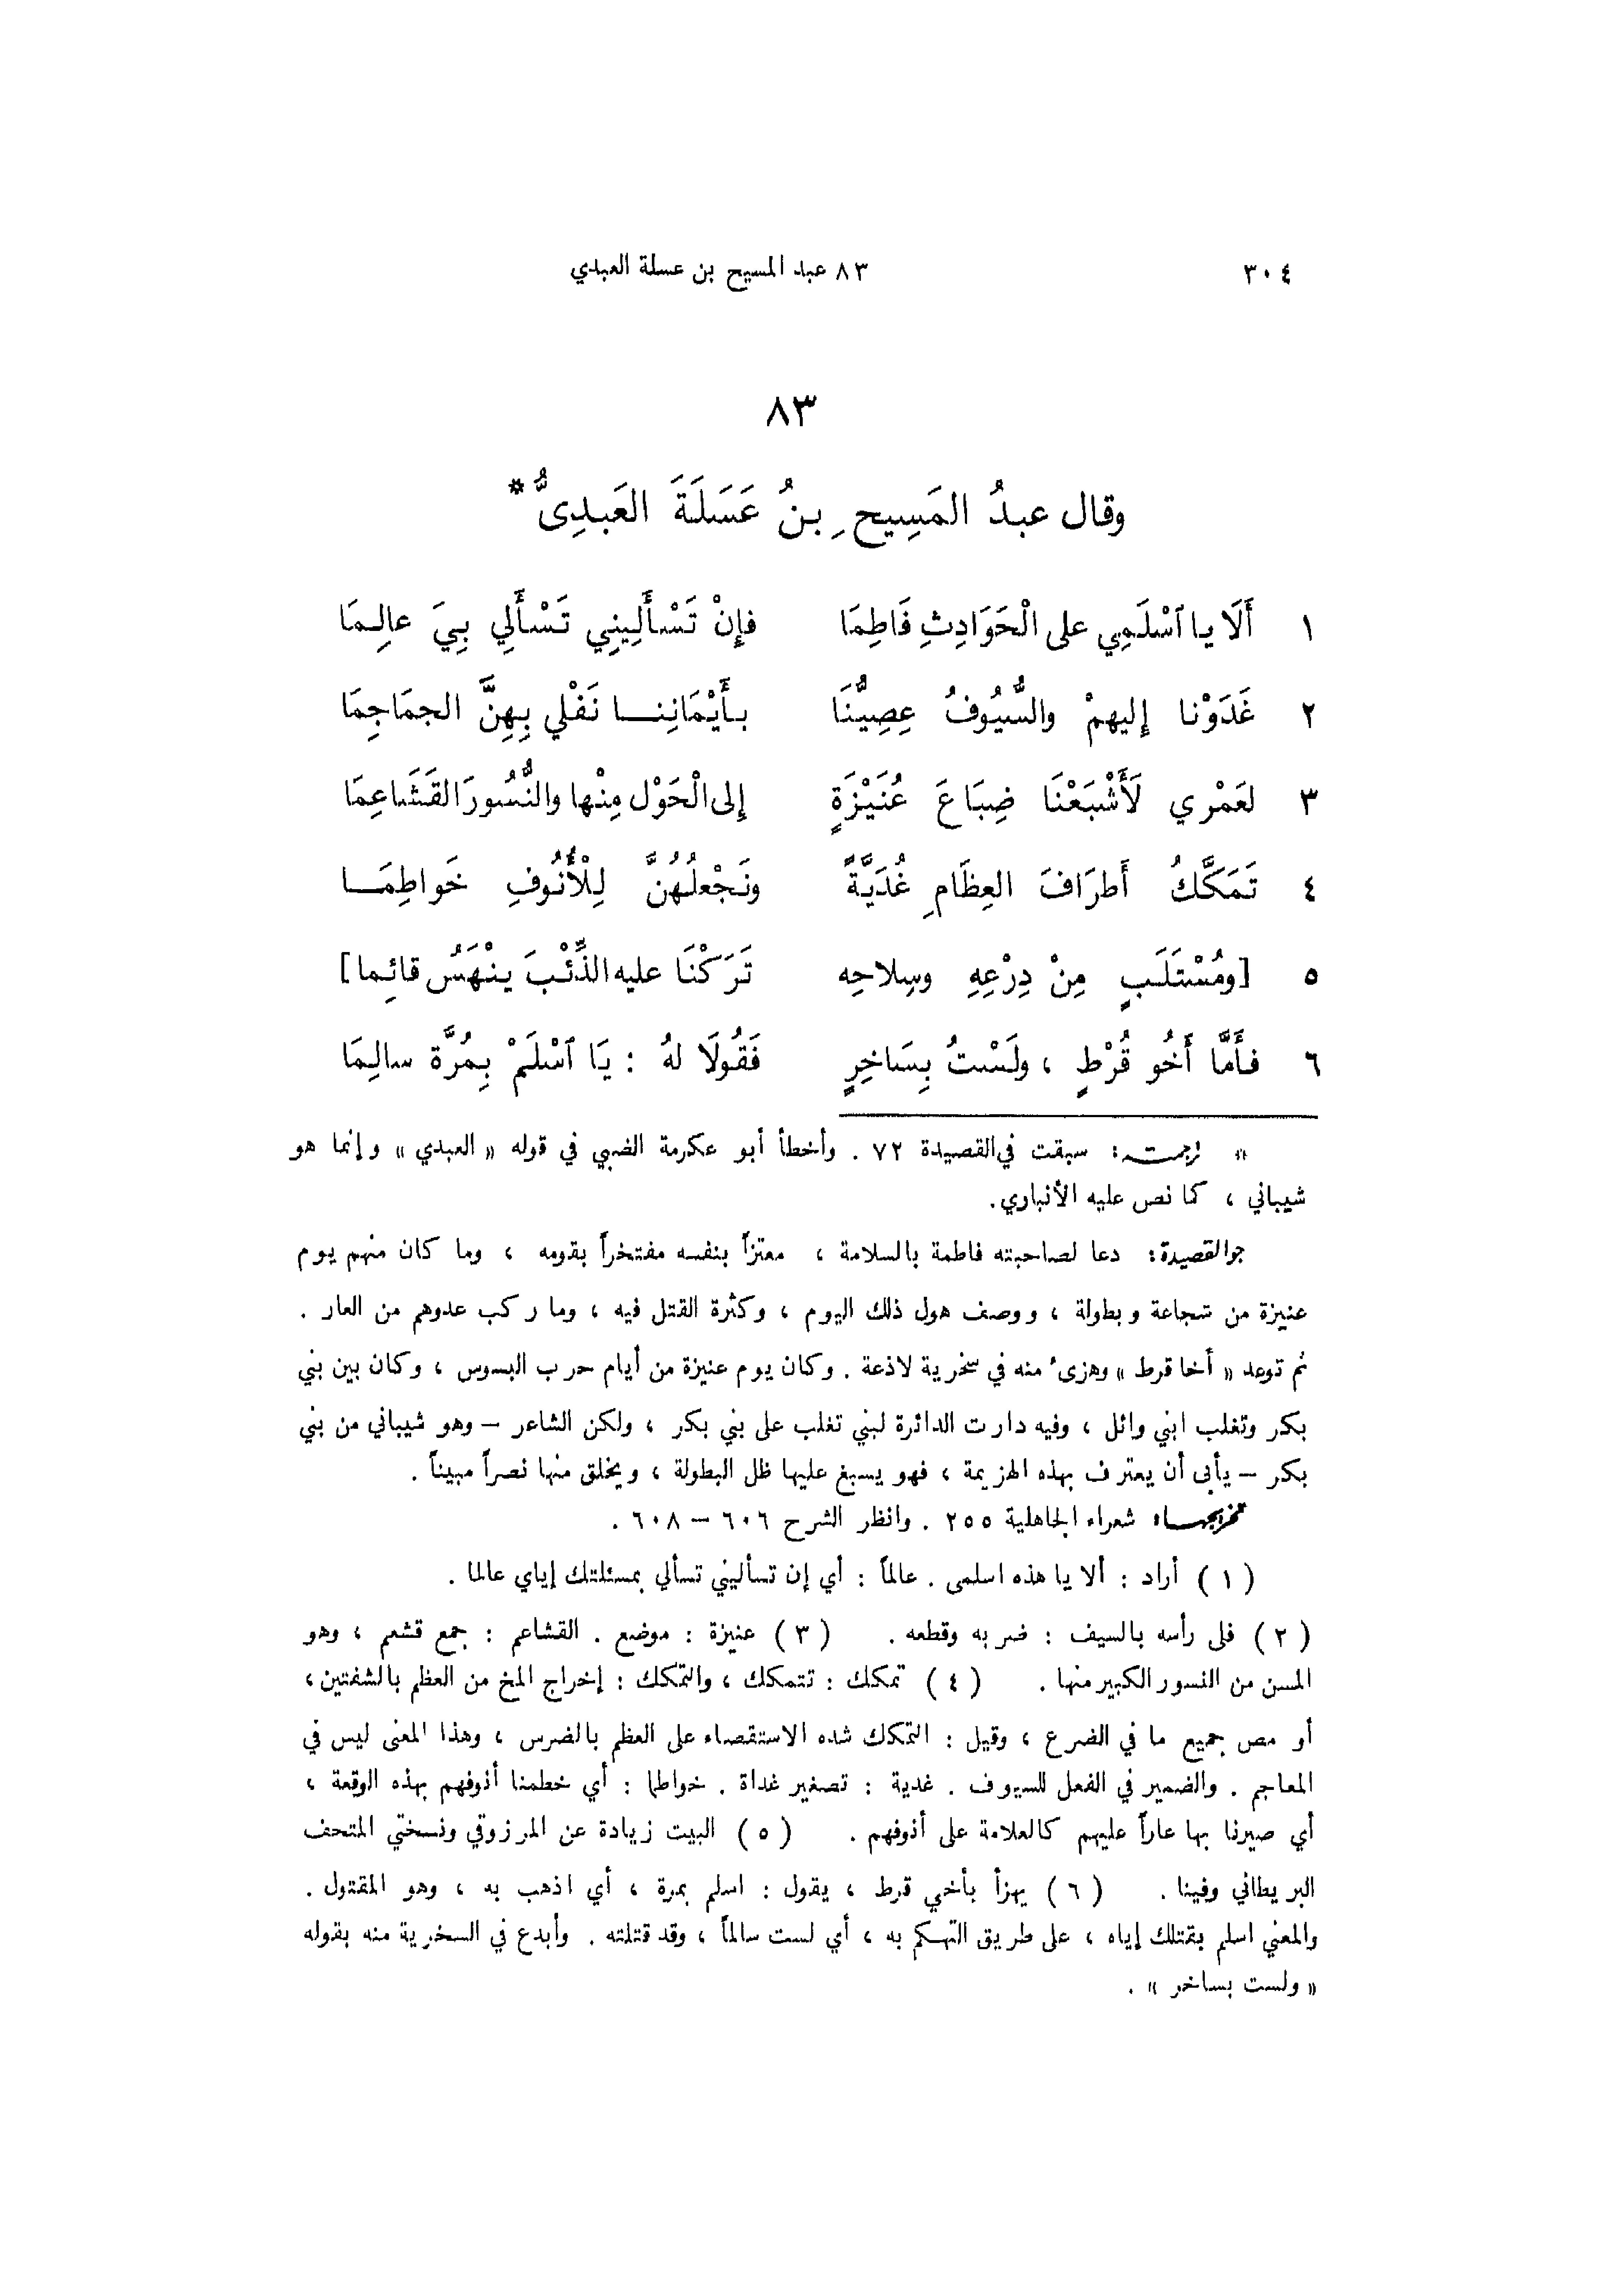 ٣٠٤
٨٣ عبد المسيح بن عسلة العبدي
٨٣
وقال عبدُ المَسِيحِ بنُ عَسَلَةَ العَبدِىُّ *
١ أَلَا يا ٱسْلَمِي على الْحَوَادِثِ فَاطِمَا فإِنْ تَسْأَلِينِي تَسْأَلِي بِيَ عالِمَا
٢ غَدَوْنا إِليهمْ والسُّيُوفُ عِصِيُّنَا بأَيْمَانِنا نَفْلِي بِهِنَّ الجمَاجِمَا
٣ لعَمْرِي لَأَشْبَعْنَا ضِبَاعَ عُنَيْزَةٍ إِلى الْحَوْلِ مِنْها والنُّسُورَ القَشَاعِمَا
٤ تَمَكَّكُ أَطرَافَ العِظَامِ غُدَيَّةً ونَجْعلُهُنَّ لِلْأُنُوفِ خَواطِمَا
٥ [ومُسْتَلَبٍ مِنْ دِرْعِهِ وسِلاحِه تَرَكْنَا عليه الذِّئْبَ ينْهَسُ قائِما]
٦ فأَمَّا أَخُو قُرْطٍ ، ولَسْتُ بِسَاخِرٍ فَقُولَا لهُ : يَا ٱسْلَمْ بِمُرَّة سالِمَا
* ترجمته: سبقت في القصيدة ٧٢ . وأخطأ أبو عكرمة الضبي في قوله « العبدي » وإنما هو
شيباني ، كما نص عليه الأنباري.
جو القصيدة: دعا لصاحبته فاطمة بالسلامة ، معتزاً بنفسه مفتخراً بقومه ، وما كان منهم يوم
عنيزة من شجاعة وبطولة ، ووصف هول ذلك اليوم ، وكثرة القتل فيه ، وما ركب عدوهم من العار .
ثم توعد « أخا قرط » وهزىء منه في سخرية لاذعة . وكان يوم عنيزة من أيام حرب البسوس ، وكان بين بني
بكر وتغلب ابني وائل ، وفيه دارت الدائرة لبني تغلب على بني بكر ، ولكن الشاعر – وهو شيباني من بني
بكر – يأبى أن يعترف بهذه الهزيمة ، فهو يسبغ عليها ظل البطولة ، ويخلق منها نصراً مبيناً .
تخريجها: شعراء الجاهلية ٢٥٥ . وانظر الشرح ٦٠٦ – ٦٠٨ .
( ١ ) أراد : ألا يا هذه اسلمى . عالماً : أي إن تسأليني تسألي بمسئلتك إياي عالما .
( ٢ ) فلى رأسه بالسيف : ضربه وقطعه . ( ٣ ) عنيزة : موضع . القشاعم : جمع قشعم ، وهو
المسن من النسور الكبير منها . ( ٤ ) تمكك : تتمكك ، والتمكك : إخراج المخ من العظم بالشفتين ،
أو مص جميع ما في الضرع ، وقيل : التمكك شده الاستقصاء على العظم بالضرس ، وهذا المعنى ليس في
المعاجم . والضمير في الفعل للسيوف . غدية : تصغير غداة . خواطما : أي خطمنا أنوفهم بهذه الوقعة ،
أي صيرنا بها عاراً عليهم كالعلامة على أنوفهم . ( ٥ ) البيت زيادة عن المرزوقي ونسختي المتحف
البريطاني وفينا . ( ٦ ) يهزأ بأخي قرط ، يقول : اسلم بمرة ، أي اذهب به ، وهو المقتول .
والمعني اسلم بقتلك إياه ، على طريق التهكم به ، أي لست سالماً ، وقد قتلته . وأبدع في السخرية منه بقوله
« ولست بساخر » .